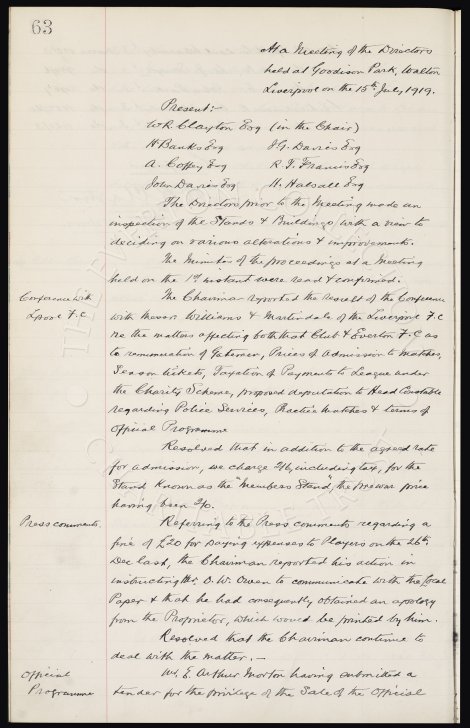 63
At a Meeting of the Directors
held at Goodison Park, Walton
Liverpool on the 15th July, 1919.
Present:-
W R Clayton Esq (in the Chair)
H Banks Esq J. G. Davies Esq
A. Coffey Esq R. T. Francis Esq
John Davies Esq H. Halsall Esq
The Directors prior to the Meeting made an
inspection of the Stands & Buildings with a view to
deciding on various alterations & improvements.
The Minutes of the proceedings at a Meeting
held on the 1st instant were read & confirmed.
Conference with
L'pool F.C.
The Chairman reported the result of the Conference
with Messrs Williams & Martindale of the Liverpool F.C
re the matters affecting both that Club & Everton F.C as
to remuneration of Gatemen, Prices of Admission to Matches,
Season tickets, Taxation of Payments to League under
the Charity Scheme, proposed deputation to Head Constable
regarding Police Services, Practice Matches & terms of
Official Programme
Resolved that in addition to the agreed rate
for admission, we charge 2/6, including tax, for the
Stand known as the "Members Stand", the prewar price
having been 2/0.
Press comments.
Referring to the Press comments regarding a
fine of £20 for paying expenses to Players on the 26th
Dec last, the Chairman reported his action in
instructing Mr O. W. Owen to communicate with the local
Paper & that he had consequently obtained an apology
from the Proprietor, which would be printed by him.
Resolved that the Chairman continue to
deal with the matter. -
Official
Programme
Mr. E. Arthur Morton having submitted a
tender for the privilege of the Sale of the Official